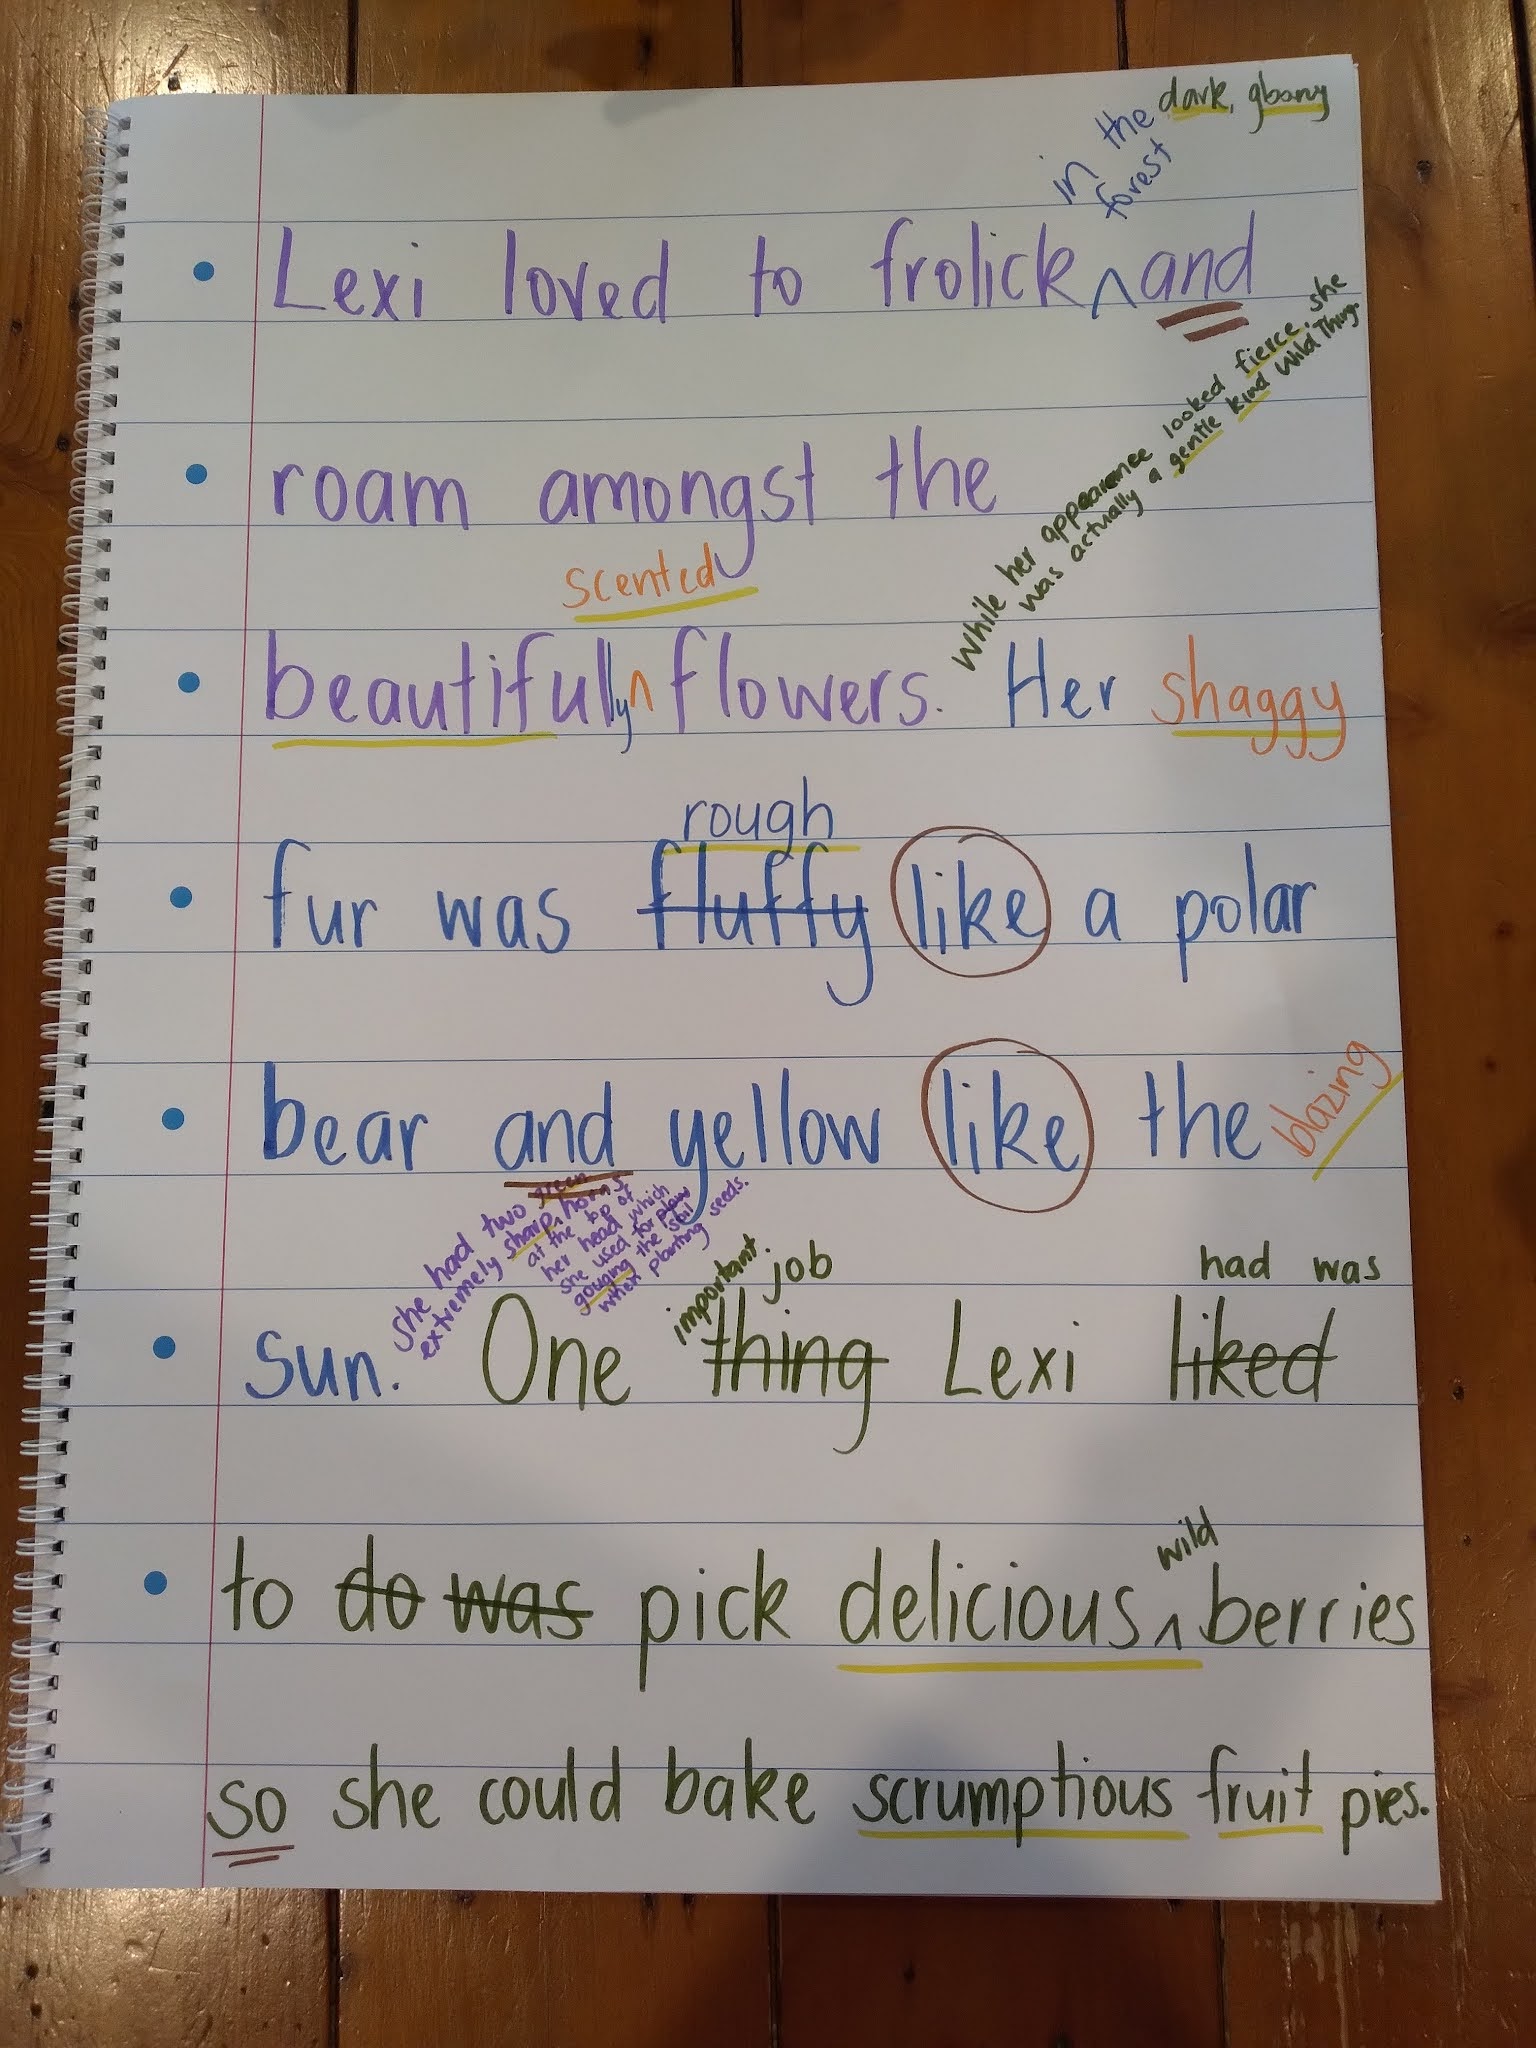 dark, gbony
in the
forest
Lexi loved to frolick ^ and
While her appearance looked fierce, she
was actually a gentle kind Wild Thing.
roam amongst the
scented
beautifully ^ flowers. Her shaggy
rough
fur was fluffy like a polar
bear and yellow like the blazing
she had two green
extremely sharp ^ horns
at the top of
her head which
she used for plow
gouging the soil
when planting seeds.
important job had was
sun. One thing Lexi liked
wild
to do was pick delicious ^ berries
so she could bake scrumptious fruit pies.